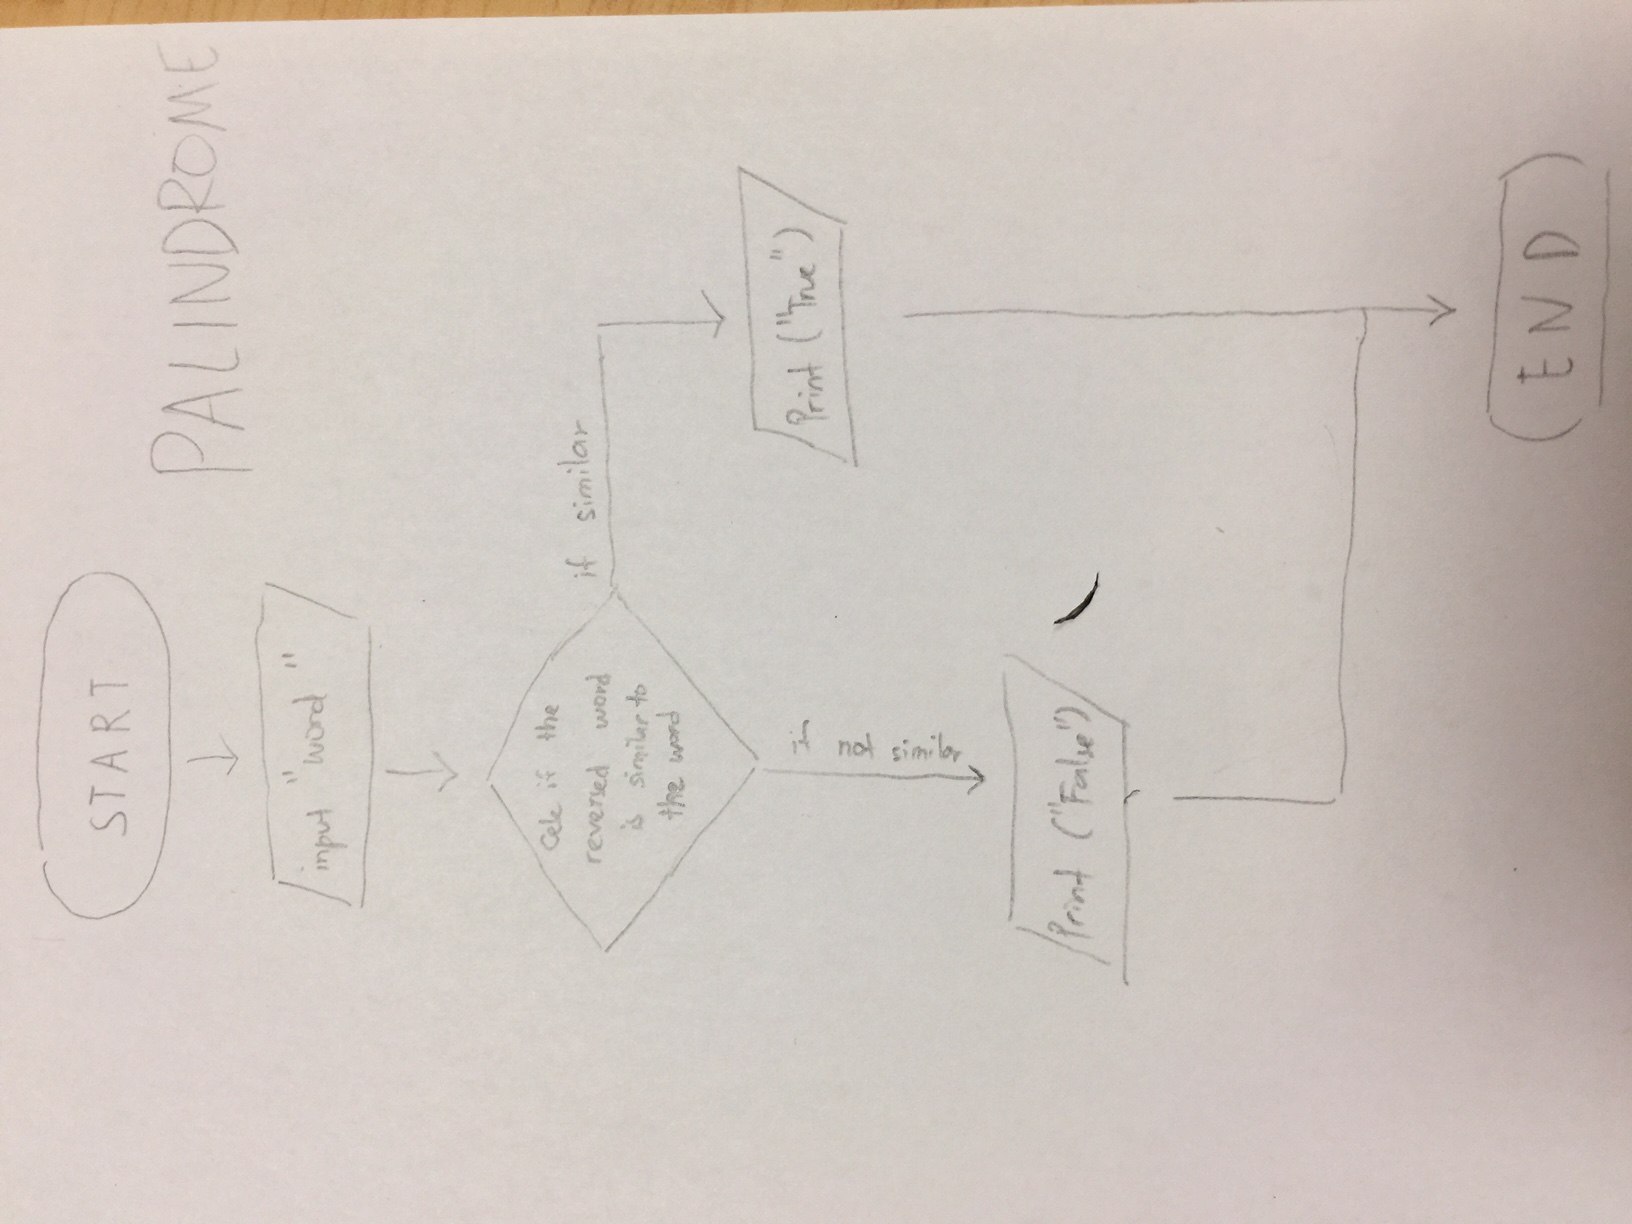 START
PALINDROME
input "word"
Cek if the
reversed word
is similar to
the word
if similar
if not similar
Print ("True")
Print ("False")
END